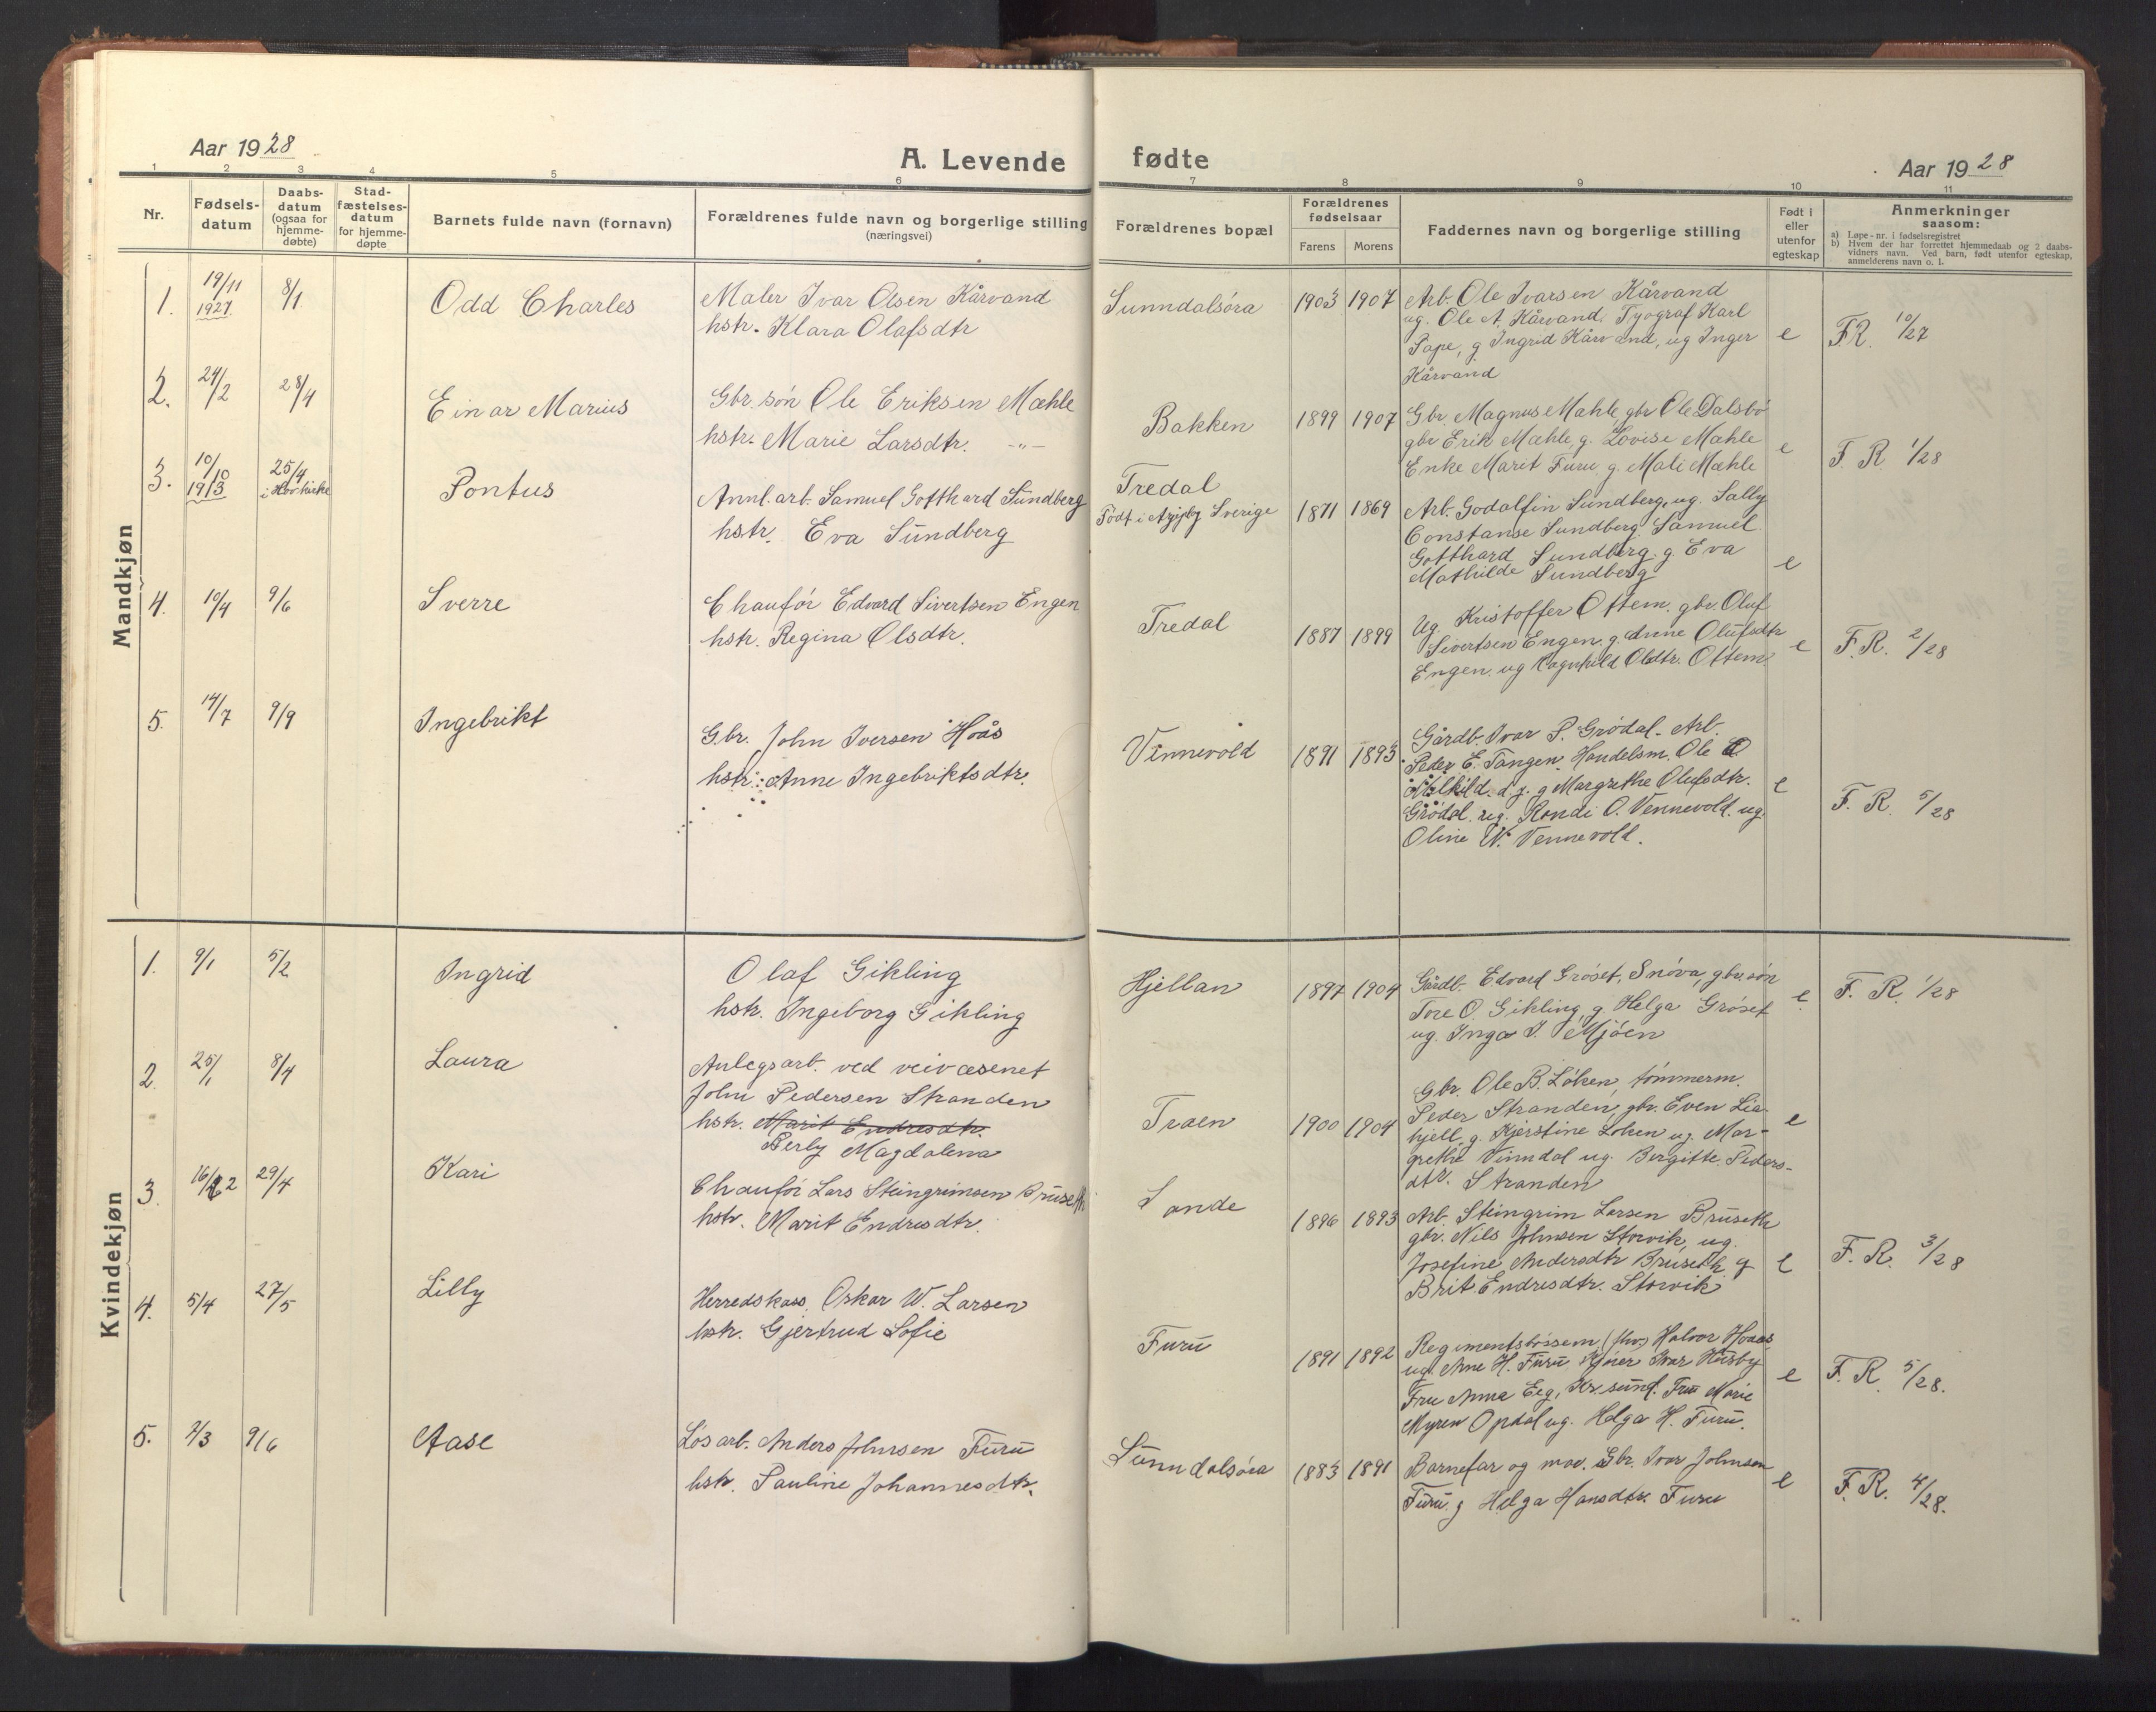 Aar 1928
A. Levende fødte
Aar 1928
1 2 3 4 5 6 7 8 9 10 11
Nr.
Fødsels-
datum
Daabs-
datum
(ogsaa for
hjemme-
døbte)
Stad-
fæstelses-
datum
for hjemme-
døpte
Barnets fulde navn (fornavn)
Forældrenes fulde navn og borgerlige stilling
(næringsvei)
Forældrenes bopæl
Forældrenes
fødselsaar
Farens Morens
Faddernes navn og borgerlige stilling
Født i
eller
utenfor
egteskap
Anmerkninger
saasom:
a) Løpe-nr. i fødselsregistret
b) Hvem der har forrettet hjemmedaab og 2 daabs-
vidners navn. Ved barn, født utenfor egteskap,
anmelderens navn o. l.
Mandkjøn
1. 19/11 1927 8/1 Odd Charles
Maler Ivar Olsen Kårvand
hstr. Klara Olafsdtr
Sunndalsöra 1903 1907
Arb. Ole Ivarsen Kårvand
ug. Ole A. Kårvand. Tyograf Karl
Pape, g Ingrid Kårvand, ug Inger
Kårvand
e F.R. 10/27
2. 24/2 28/4 Einar Marius
Gbr. sön Ole Eriksen Mæhle
hstr. Marie Larsdtr. -"-
Bakken 1899 1907
Gbr. Magnus Mæhle, gbr Ole Dalsbö
gbr Erik Mæhle, g. Lovise Mæhle
Enke Marit Furu g. Mali Mæhle
e F. R. 1/28
3. 10/10 1913 25/4 i Hov kirke Pontus
Annl. arb. Samuel Gotthard Sundberg
hstr. Eva Sundberg
Tredal
Födt i Sverige 1871 1869
Arb. Godalfin Sundberg, ug. Sally
Constanse Sundberg. Samuel
Gotthard Sundberg. g Eva
Mathilde Sundberg
e
4. 10/4 9/6 Sverre
Chauför Edvard Sivertsen Engen
hstr. Regina Olsdtr.
Tredal 1887 1899
Ug. Kristoffer Ottem. gbr. Oluf
Sivertsen Engen, g. Anne Olufsdtr
Engen. ug Ragnhild Olsdtr. Ottem.
e F. R. 2/28
5. 14/7 9/9 Ingebrikt
Gbr. John Iversen Hoås
hstr. Anne Ingebriktsdtr.
Vinnevold 1891 1893
Gårdb. Ivar P. Grödal. Arb.
Peder E. Tangen. Handelsm. Ole O
d.y. g Margrethe Olufsdtr.
Grödal. ug. Randi O. Vennevold. ug.
Oline W. Vennevold.
e F. R. 5/28
Kvindekjøn
1. 9/1 5/2 Ingrid
Olaf Gikling
hstr. Ingeborg Gikling
Hjellan 1897 1904
Gårdb. Edvard Gröset, Snöva, gbr. sön
Tore O. Gikling, g. Helga Gröset
ug. Inga I. Mjöen
e F. R. 1/28
2. 25/1 8/4 Laura
Anlegsarb. ved veivæsenet
John Pedersen Stranden
hstr. Marit Endresdtr.
Perly Magdalena
Traen 1900 1904
Gbr. Ole B. Löken, tömmerm.
Peder Stranden, gbr. Even Lia-
hjell, g. Kjerstine Loken ug. Mar-
grethe Vinndal ug. Bergitte Peders-
dtr. Stranden
e
3. 16/2 29/4 Kari
Chauför Lars Steingrimsen Bruseth
hstr. Marit Endresdtr.
Sande 1896 1893
Arb. Steingrim Larsen Bruseth
gbr. Nils Johnsen Storvik, ug.
Josefine Andersdtr Bruseth g
Brit Endresdtr. Storvik
e F. R. 3/28
4. 5/4 27/5 Lilly
Herredskass. Oskar W. Larsen
hstr. Gjertrud Sofie
Furu 1891 1892
Regimentsbössem. (fhv.) Halvor Hoaas
ug. Ane H. Furu Ivar Husby
Fru Anna Eeg, Kr.sund. Fru Marie
Myren Opdal ug. Helga H. Furu.
e F. R. 5/28.
5. 2/3 9/6 Aase
Lösarb. Anders Johnsen Furu
hstr. Pauline Johannesdtr.
Sunndalsöra 1883 1891
Barnefar og mor. Gbr. Ivar Johnsen
Furu g Helga Hansdtr. Furu
e F.R. 4/28.